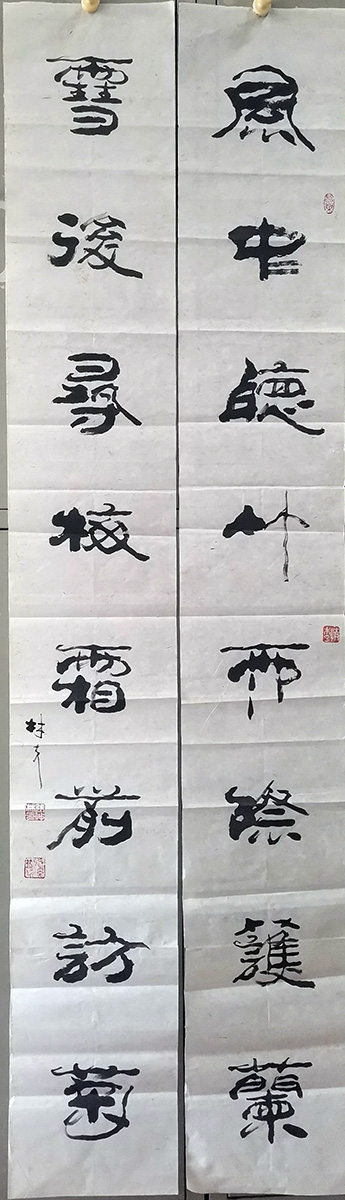 風中聽竹雨際護蘭
雪後尋梅霜前訪菊